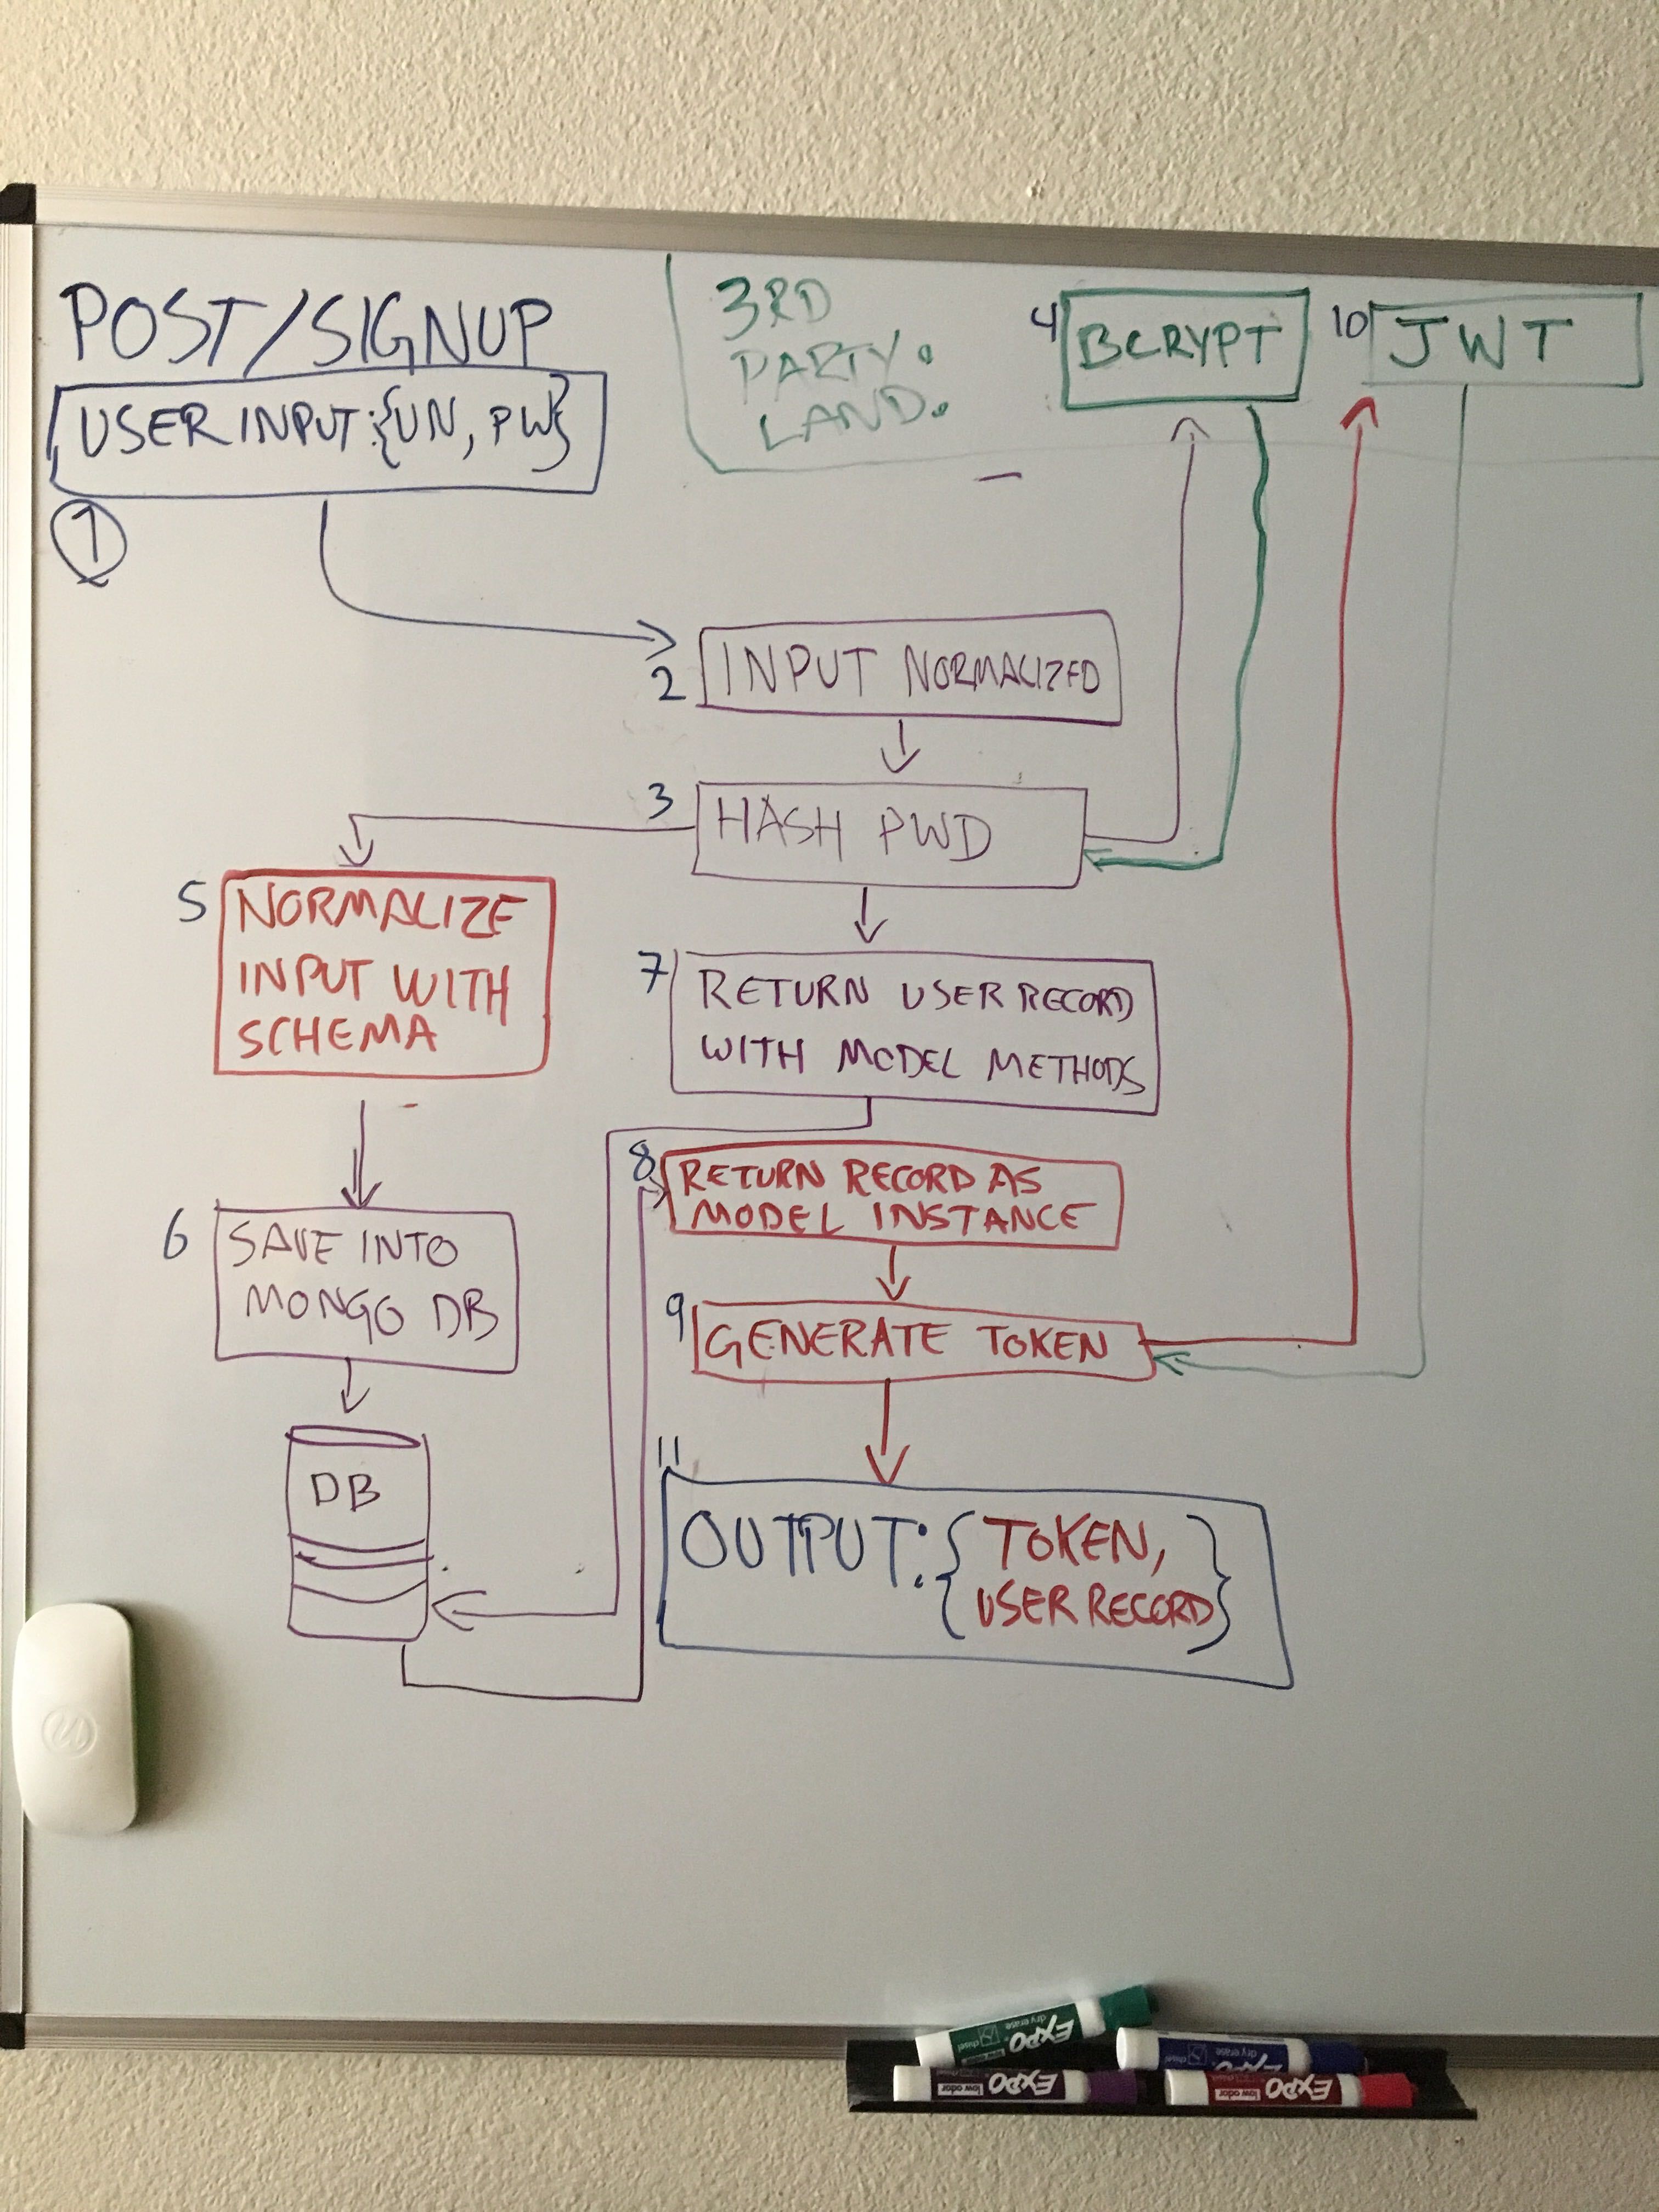 POST/SIGNUP
USER INPUT:{UN, PW}
1
3RD
PARTY.
LAND.
4 BCRYPT
10 JWT
2 INPUT NORMALIZED
3 HASH PWD
5 NORMALIZE
INPUT WITH
SCHEMA
7 RETURN USER RECORD
WITH MODEL METHODS
6 SAVE INTO
MONGO DB
8 RETURN RECORD AS
MODEL INSTANCE
9 GENERATE TOKEN
DB
11
OUTPUT:{TOKEN,
USER RECORD}
EXPO
dry erase
chisel
EXPO
dry erase
chisel
EXPO
low odor
EXPO
low odor